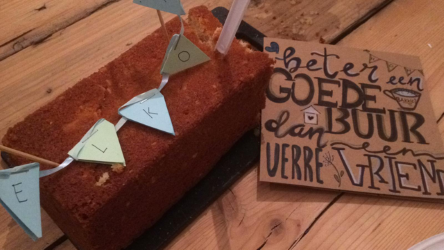 ELKO
beter een
GOEDE
BUUR
dan een
VERRE VRIEND